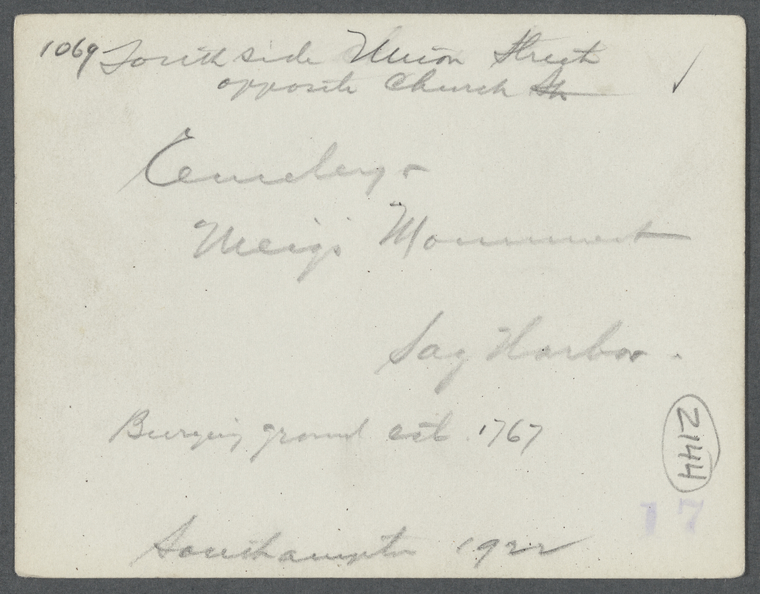 1069 South side Union Street
opposite Church St.
✓
Cemetery
Meigs Monument
Sag Harbor.
Burying ground est 1767
2144
17
Southampton 1922